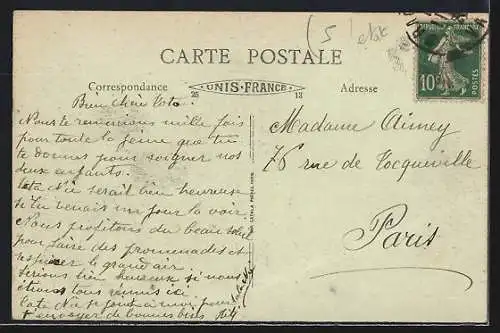 ( 5 etat
CARTE POSTALE
REPUBLIQUE FRANCAISE
10c
POSTES
Correspondance
UNIS-FRANCE
25 13
Adresse
Bien chère Tata
Nous te remercions mille fois
pour toute la peine que tu
te donnes pour soigner nos
deux enfants.
Tata serait bien heureuse
si tu venais un jour la voir
Nous profitons du beau soleil
pour faire des promenades et
respirer le grand air
Serions bien heureux si nous
étions tous réunis ici
Tata joint à moi pour
t envoyer de bonnes bises
Madame Aimey
76 rue de Tocqueville
Paris